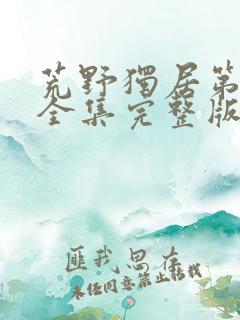 荒野獨居第
全集完整版
匪我思存
未经同意禁止转载